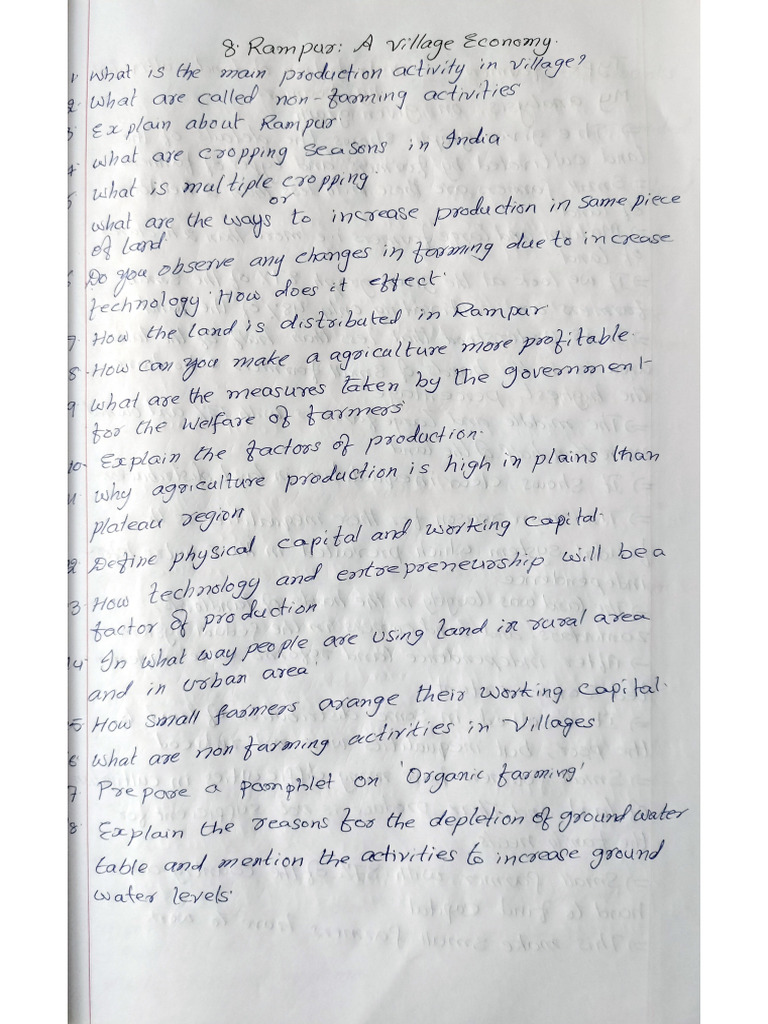 8. Rampur: A Village Economy.
1. What is the main production activity in village?
2. What are called non-farming activities
3. Explain about Rampur.
4. What are cropping seasons in India
5. What is multiple cropping.
or
What are the ways to increase production in same piece
of land
6. Do you observe any changes in farming due to increase
technology. How does it effect.
7. How the land is distributed in Rampur
8. How can you make a agriculture more profitable.
9. What are the measures taken by the government
for the welfare of farmers
10. Explain the factors of production.
11. Why agriculture production is high in plains than
plateau region
12. Define physical capital and working capital.
13. How technology and entrepreneurship will be a
factor of production
14. In what way people are using land in rural area
and in urban area
15. How small farmers arange their working capital.
16. What are non farming activities in villages
17. Prepare a pamphlet on 'Organic farming'
18. Explain the reasons for the depletion of ground water
table and mention the activities to increase ground
water levels.